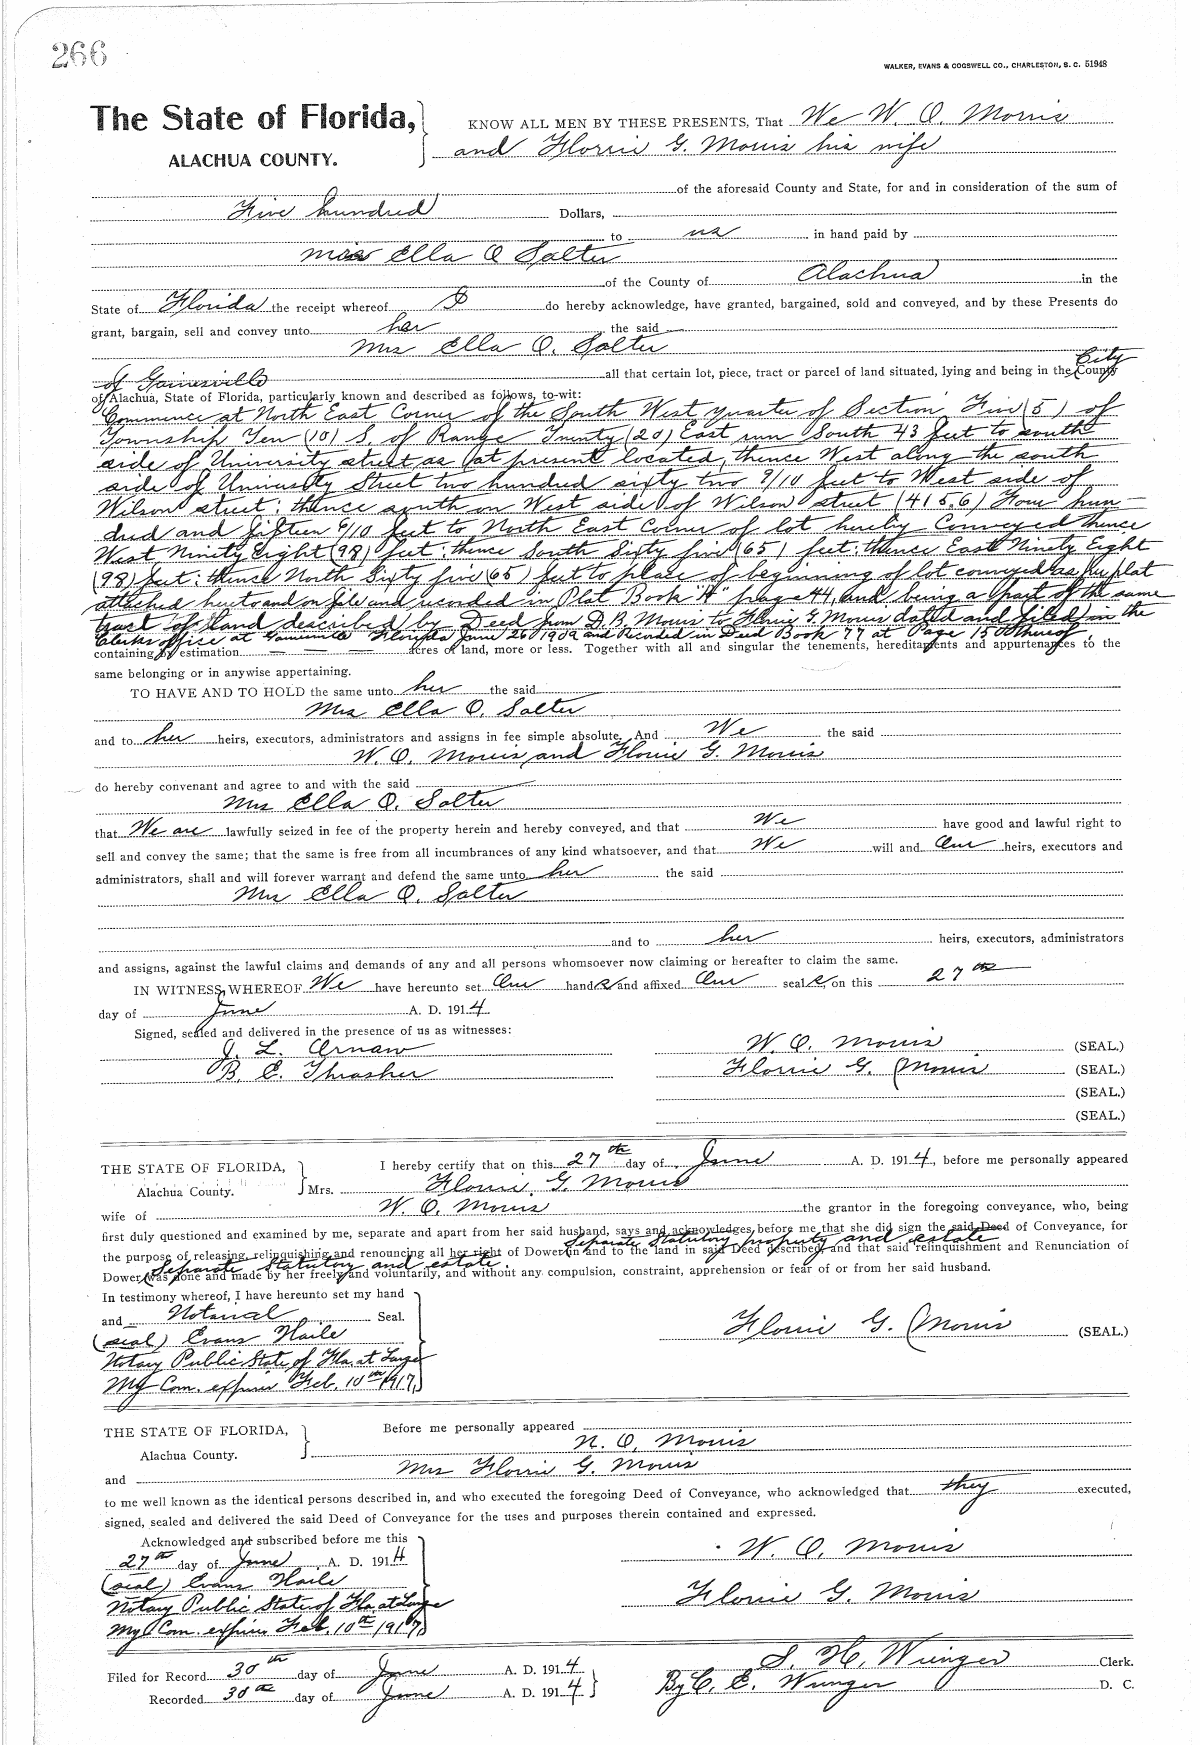 266
WALKER, EVANS & COGSWELL CO., CHARLESTON, S. C. 51948
The State of Florida,
ALACHUA COUNTY.
KNOW ALL MEN BY THESE PRESENTS, That We W. O. Morris
and Florrie G. Morris his wife
of the aforesaid County and State, for and in consideration of the sum of
Five hundred Dollars,
to us in hand paid by
Mrs Ella O Salter
of the County of Alachua in the
State of Florida the receipt whereof do hereby acknowledge, have granted, bargained, sold and conveyed, and by these Presents do
grant, bargain, sell and convey unto her the said
Mrs Ella O. Salter
of Gainesville all that certain lot, piece, tract or parcel of land situated, lying and being in the City County
of Alachua, State of Florida, particularly known and described as follows, to-wit:
Commence at North East Corner of the South West quarter of Section Five (5) of
Township Ten (10) S. of Range Twenty (20) East run South 43 feet to south
side of University street as at present located, thence West along the south
side of University Street two hundred sixty two 9/10 feet to West side of
Wilson street; thence south on West side of Wilson street (415.6) Four hun-
dred and fifteen 6/10 feet to North East Corner of lot hereby Conveyed thence
West Ninety Eight (98) feet; thence South Sixty five (65) feet; thence East Ninety Eight
(98) feet; thence North Sixty five (65) feet to place of beginning of lot conveyed as per plat
attached hereto and on file and recorded in Plat Book "A" page 44, and being a part of the same
tract of land described by Deed from D. B. Morris to Florrie G. Morris dated and filed in the
Clerks office at Gainesville Florida June 26 1909 and Recorded in Deed Book 77 at Page 150 thereof,
containing by estimation — — — acres of land, more or less. Together with all and singular the tenements, hereditaments and appurtenances to the
same belonging or in anywise appertaining.
TO HAVE AND TO HOLD the same unto her the said
Mrs Ella O. Salter
and to her heirs, executors, administrators and assigns in fee simple absolute. And We the said
W. O. Morris and Florrie G. Morris
do hereby convenant and agree to and with the said
Mrs Ella O. Salter
that We are lawfully seized in fee of the property herein and hereby conveyed, and that We have good and lawful right to
sell and convey the same; that the same is free from all incumbrances of any kind whatsoever, and that We will and Our heirs, executors and
administrators, shall and will forever warrant and defend the same unto her the said
Mrs Ella O. Salter
and to her heirs, executors, administrators
and assigns, against the lawful claims and demands of any and all persons whomsoever now claiming or hereafter to claim the same.
IN WITNESS WHEREOF We have hereunto set Our hands and affixed Our seals, on this 27th
day of June A. D. 1914.
Signed, sealed and delivered in the presence of us as witnesses:
J. L. W. O. Morris (SEAL.)
B. E. Thrasher Florrie G. Morris (SEAL.)
(SEAL.)
(SEAL.)
THE STATE OF FLORIDA,
Alachua County.
I hereby certify that on this 27th day of June A. D. 1914, before me personally appeared
Mrs. Florrie G. Morris
wife of W. O. Morris the grantor in the foregoing conveyance, who, being
first duly questioned and examined by me, separate and apart from her said husband, says and acknowledges before me that she did sign the said Deed of Conveyance, for
separate Statutory property and estate
the purpose of releasing, relinquishing and renouncing all her right of Dower in and to the land in said Deed described, and that said relinquishment and Renunciation of
Separate Statutory and estate.
Dower was done and made by her freely and voluntarily, and without any compulsion, constraint, apprehension or fear of or from her said husband.
In testimony whereof, I have hereunto set my hand
and Notarial Seal.
(seal) Evans Haile
Notary Public State of Fla. at Large
My Com. expires Feb. 10th 1917.
Florrie G. Morris (SEAL.)
THE STATE OF FLORIDA,
Alachua County.
Before me personally appeared
W. O. Morris
and Mrs Florrie G. Morris
to me well known as the identical persons described in, and who executed the foregoing Deed of Conveyance, who acknowledged that they executed,
signed, sealed and delivered the said Deed of Conveyance for the uses and purposes therein contained and expressed.
Acknowledged and subscribed before me this
27th day of June, A. D. 1914
(seal) Evans Haile
Notary Public State of Fla. at Large
My Com. expires Feb. 10th 1917.
W. O. Morris
Florrie G. Morris
Filed for Record 30th day of June A. D. 1914
Recorded 30th day of June A. D. 1914
S. H. Wienges Clerk.
By C. E. Wienges D. C.